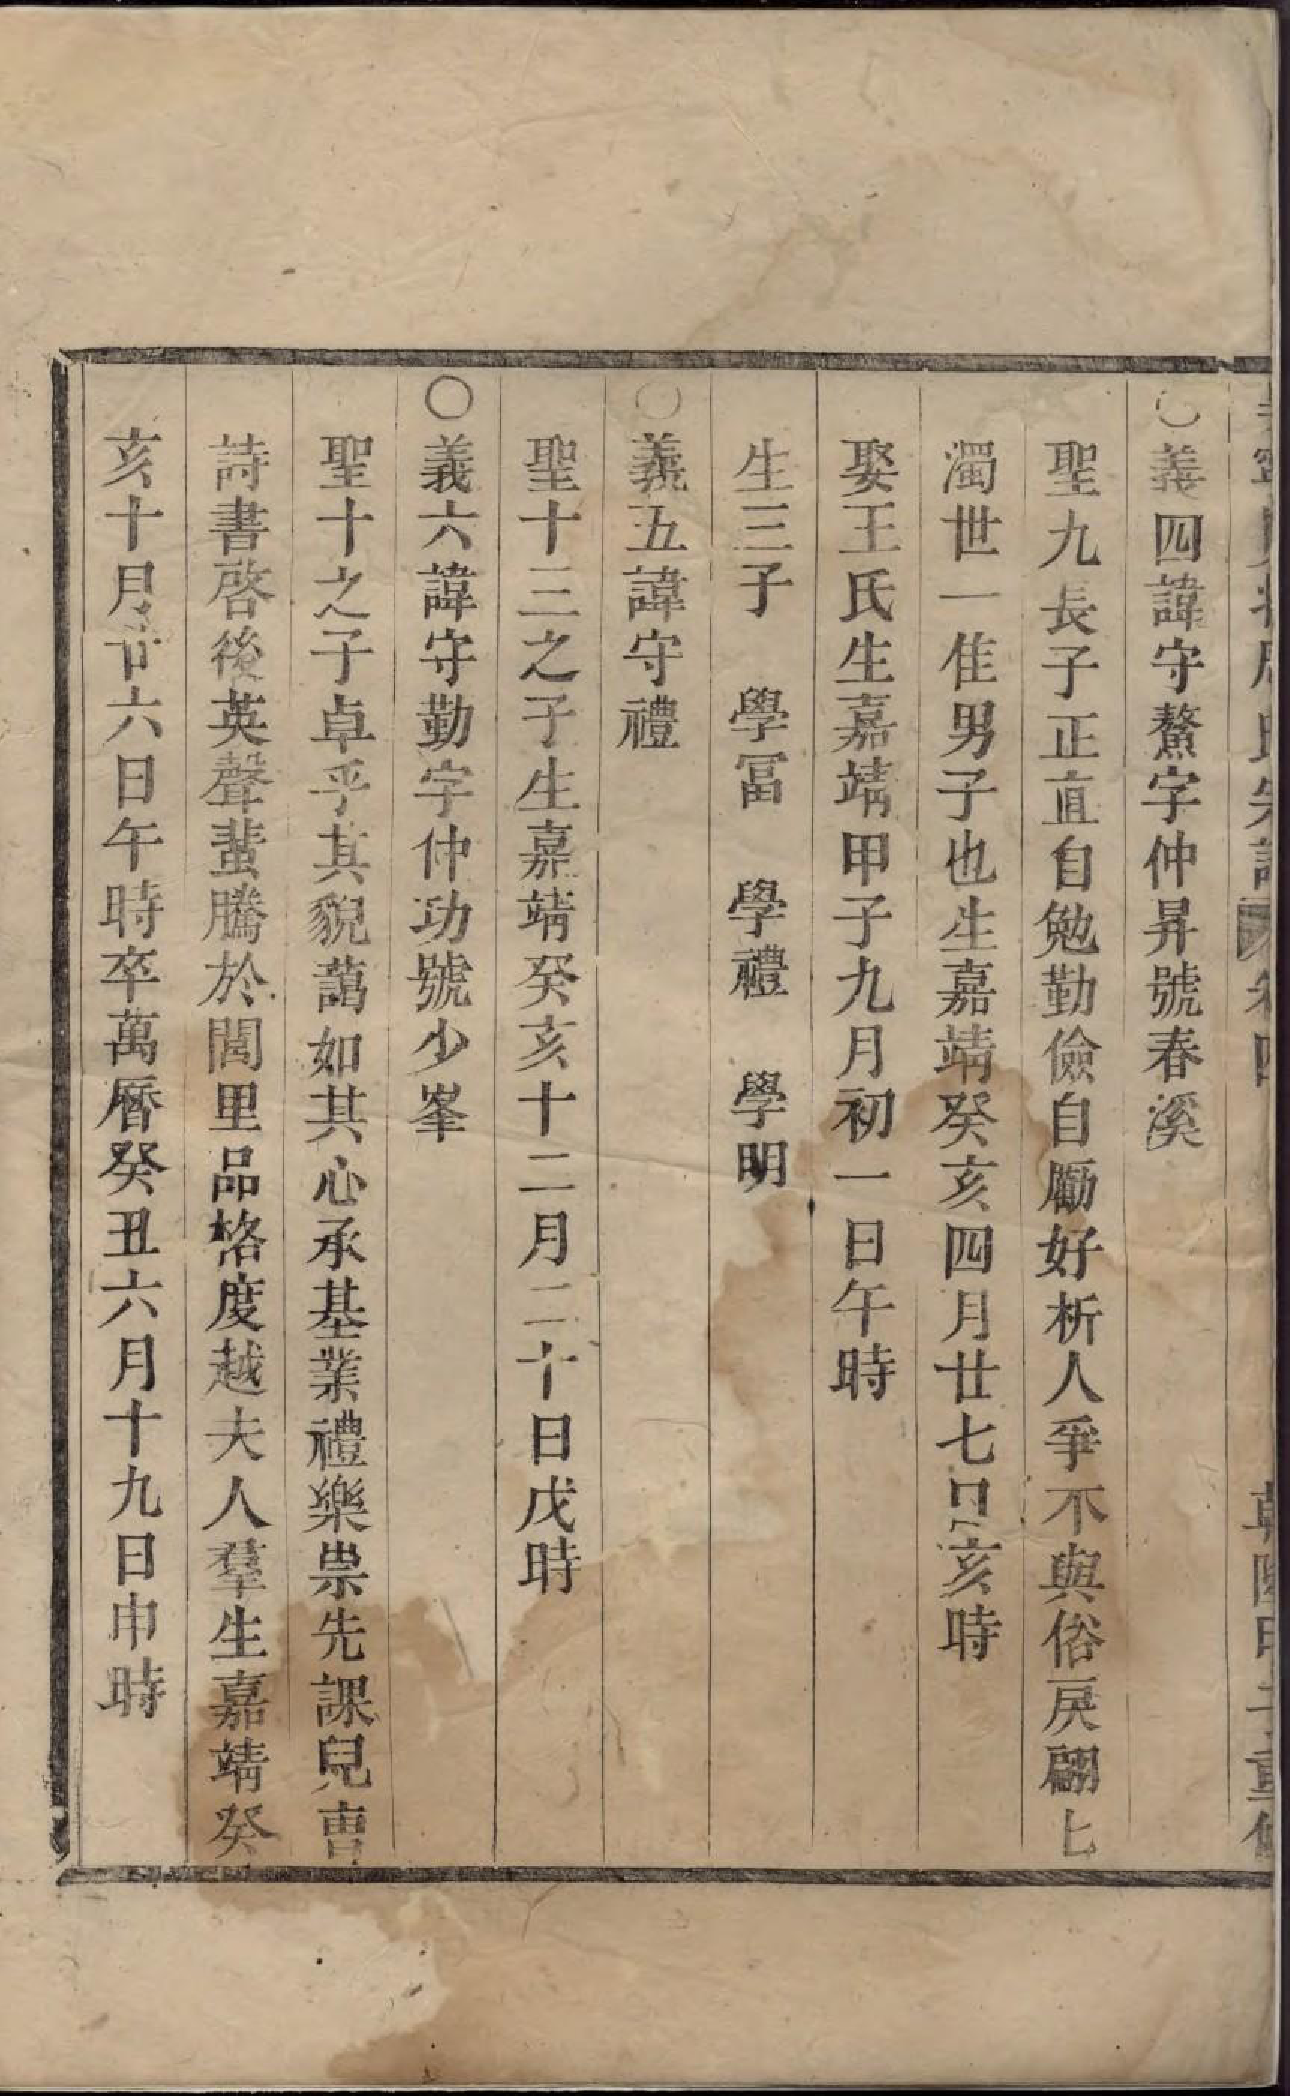 ○義四諱守鰲字仲昇號春溪
聖九長子正直自勉勤儉自勵好析人爭不與俗戾翩匕
濁世一佳男子也生嘉靖癸亥四月廿七日亥時
娶王氏生嘉靖甲子九月初一日午時
生三子 學冨 學禮 學明
○義五諱守禮
聖十三之子生嘉靖癸亥十二月二十日戌時
○義六諱守勤字仲功號少峯
聖十之子卓乎其貌藹如其心承基業禮樂祟先課兒曹
詩書啓後英聲蜚騰於閭里品格度越夫人羣生嘉靖癸
亥十月廿六日午時卒萬曆癸丑六月十九日申時